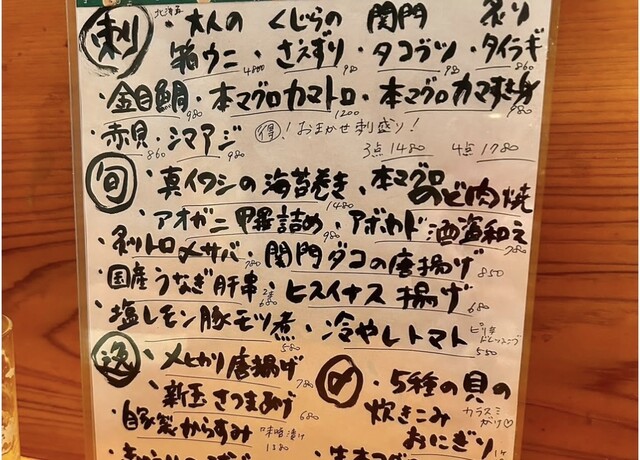 刺
北海道
・大人の 箱ウニ 4800
・くじらの さえずり 980
・関門 タコブツ 980
・炙り タイラギ 860
・金目鯛 980 ・本マグロカマトロ 1200 ・本マグロカマすき身 980
・赤貝 860 ・シマアジ 980 得!おまかせ刺盛り!
3点 1480 4点 1780
旬
・真イワシの海苔巻き 1480 ・本マグロのど肉焼
・アオガニ甲羅詰め 980 ・アボカド酒盗和え 780
・炙りトロ〆サバ 780 ・関門ダコの唐揚げ 850
・国産うなぎ肝串 2本 680 ・ヒスイナス揚げ 680
・塩レモン豚モツ煮 580 ・冷やしトマト ピリ辛ドレッシング 550
逸
・メヒカリ唐揚げ 780
・新玉さつまあげ 680
・自家製からすみ 味噌漬け 1380
〆
・5種の貝の
炊きこみ カラスミがけ♡
おにぎり